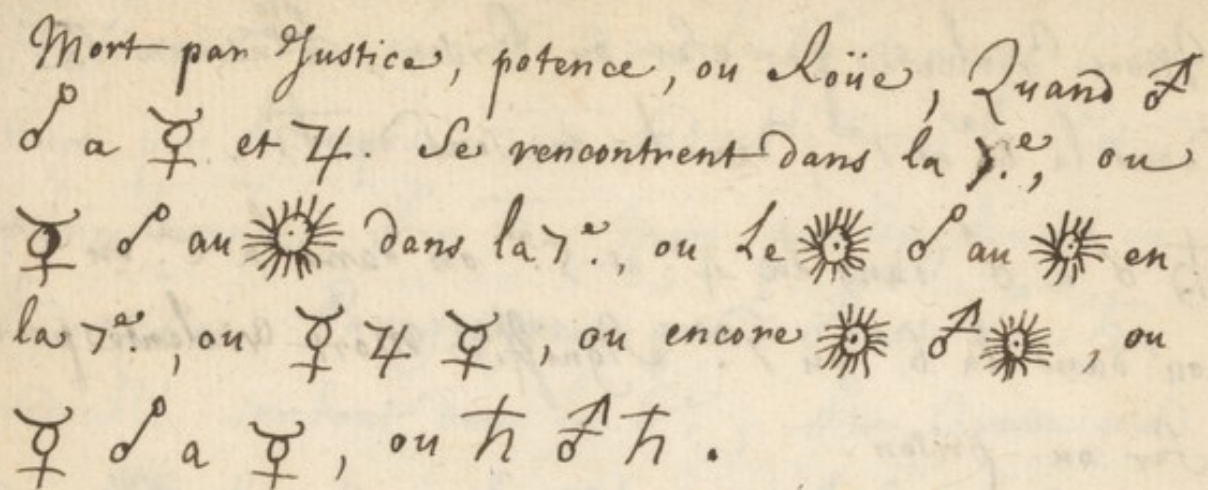 Mort par Justice, potence, ou Roüe, Quand ♂
☍ a ☿ et ♃. Se rencontrent dans la 7.e, ou
☿ ☍ au ☉ dans la 7e., ou Le ☉ ☍ au ☉ en
la 7e., ou ☿ ♃ ☿, ou encore ☉ ♂ ☉, ou
☿ ☍ a ☿, ou ♄ ♂ ♄.